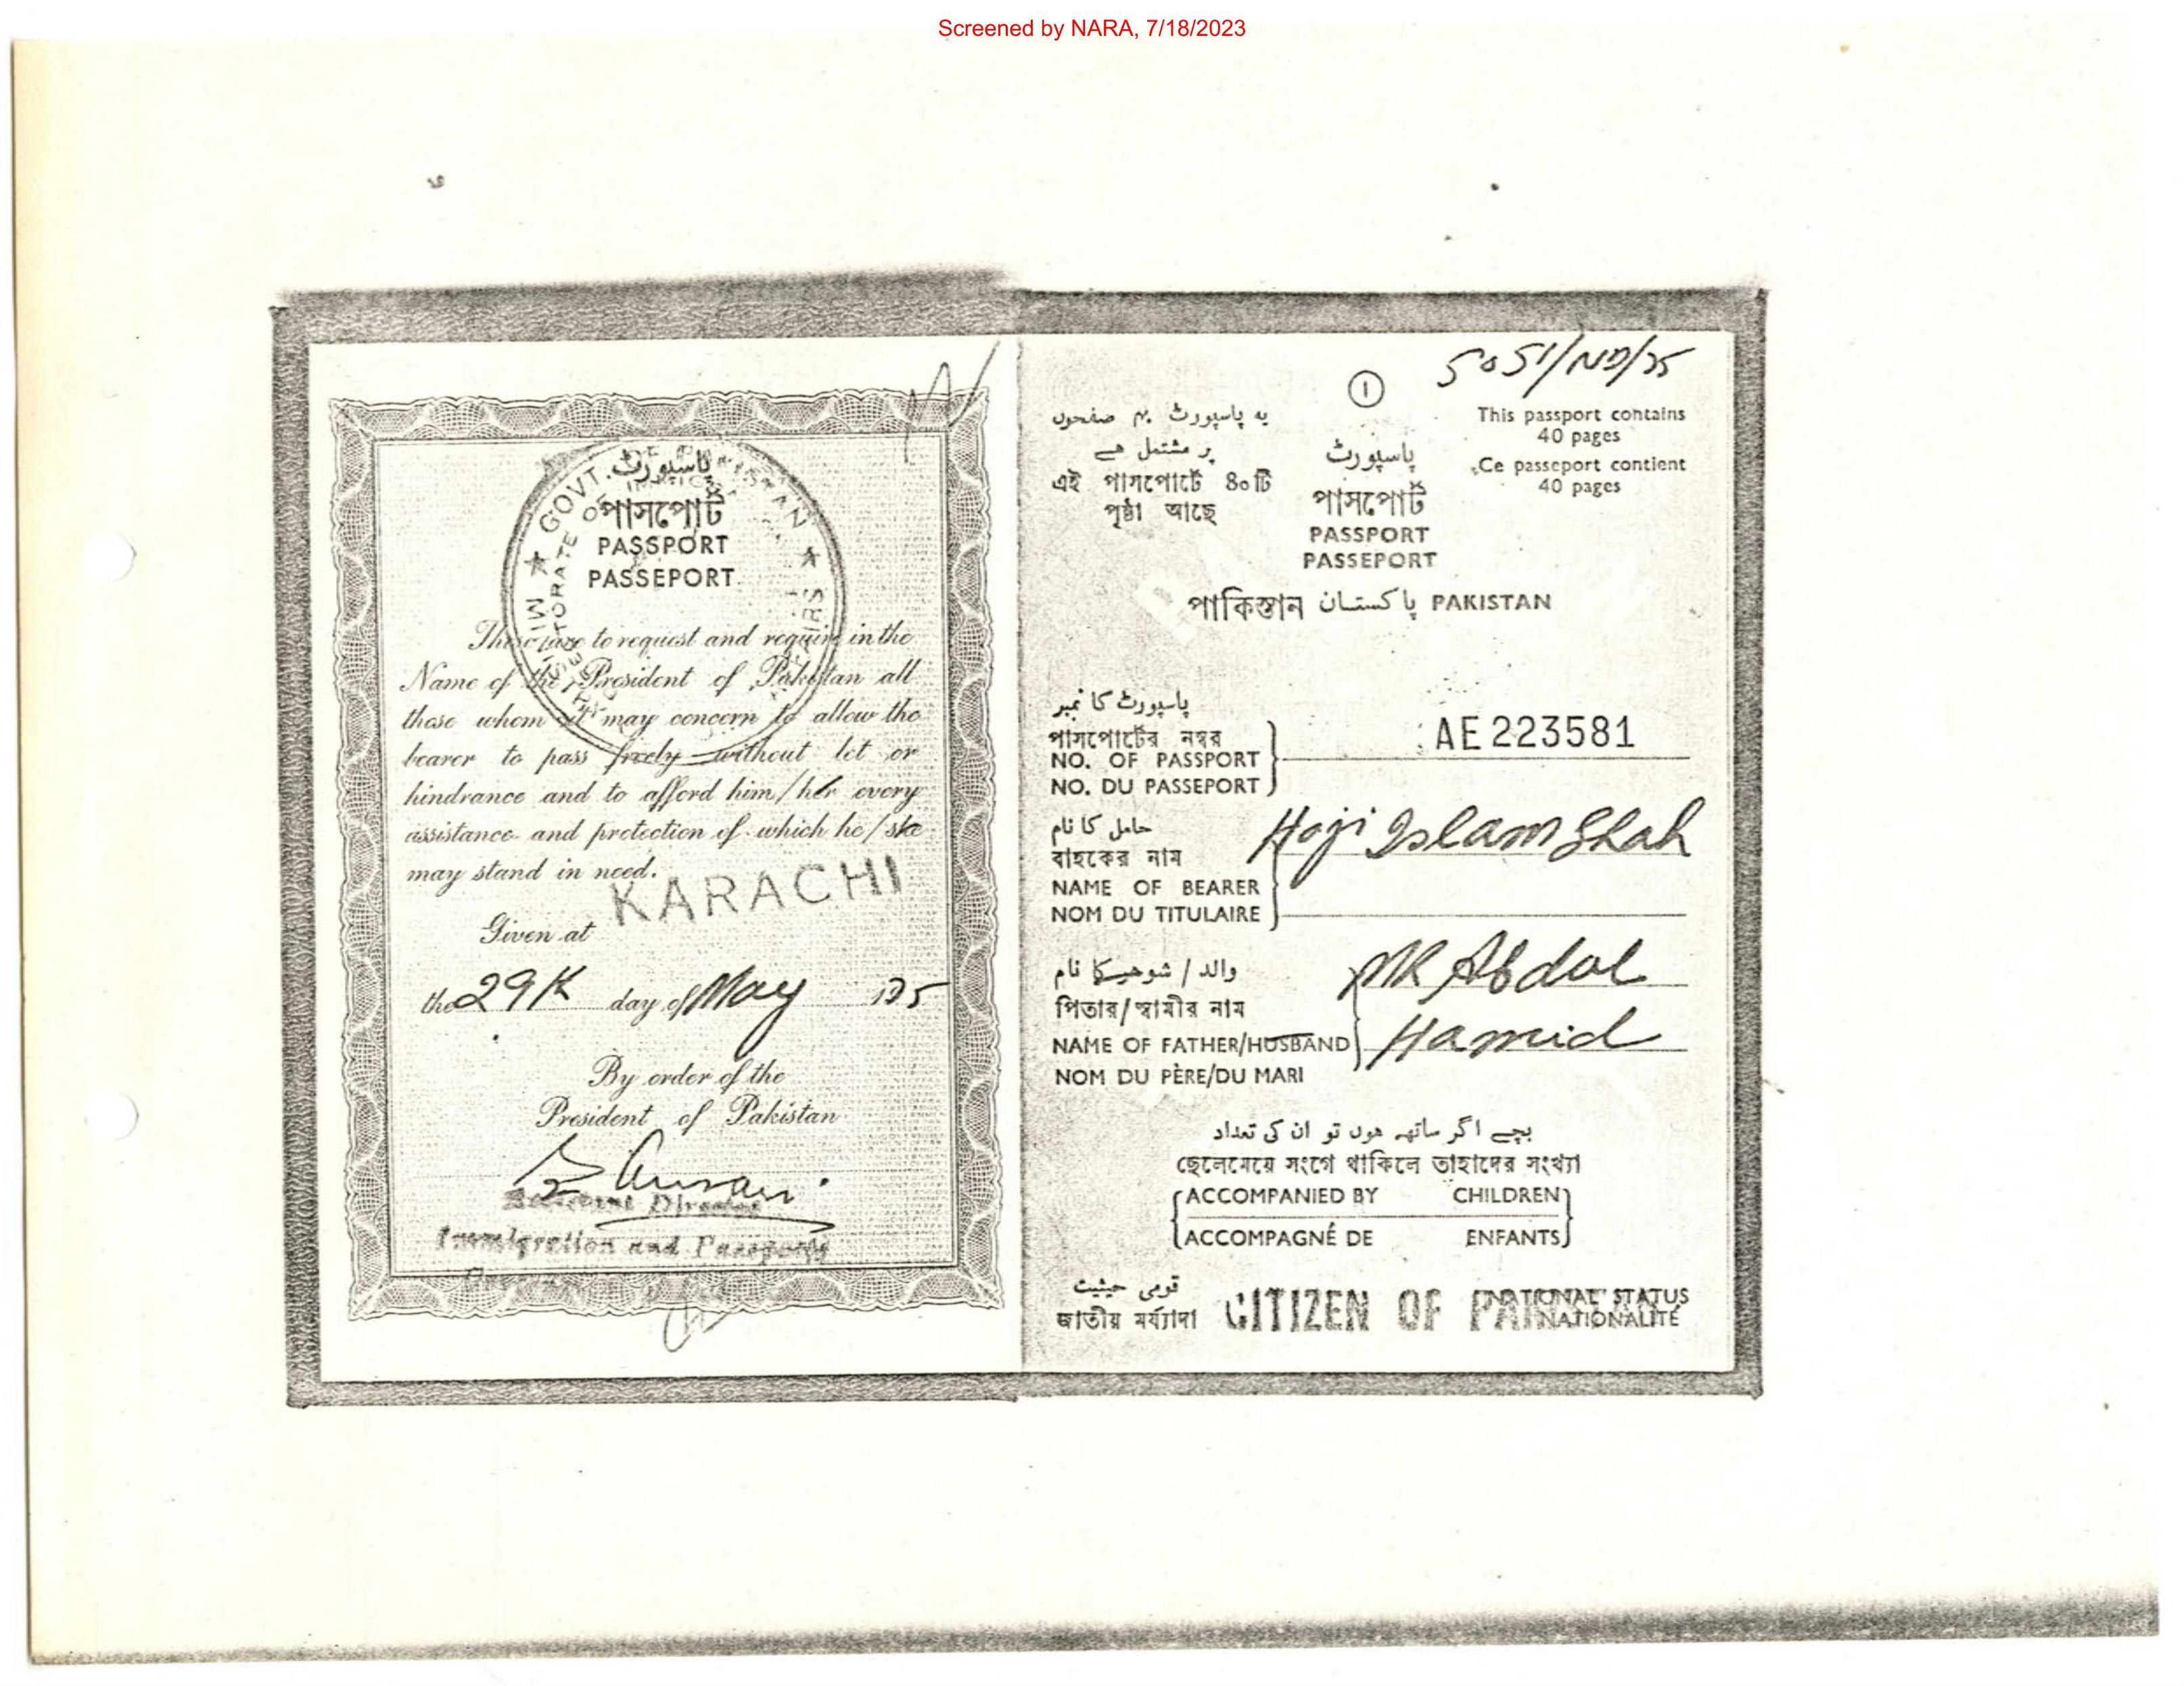 Screened by NARA, 7/18/2023
GOVT. OF PAKISTAN
پاسپورٹ
পাসপোর্ট
PASSPORT
PASSEPORT
These are to request and require in the
Name of the President of Pakistan all
those whom it may concern to allow the
bearer to pass freely without let or
hindrance and to afford him/her every
assistance and protection of which he/she
may stand in need.
Given at KARACHI
the 29th day of May 195
By order of the
President of Pakistan
Assistant Director
Immigration and Passports
1
یہ پاسپورٹ ۴۰ صفحوں
پر مشتمل ہے
এই পাসপোর্টে ৪০টি
পৃষ্ঠা আছে
پاسپورٹ
পাসপোর্ট
PASSPORT
PASSEPORT
This passport contains
40 pages
Ce passeport contient
40 pages
পাকিস্তান پاکستان PAKISTAN
پاسپورٹ کا نمبر
পাসপোর্টের নম্বর
NO. OF PASSPORT
NO. DU PASSEPORT
AE 223581
حامل کا نام
বাহকের নাম
NAME OF BEARER
NOM DU TITULAIRE
Haji Islam Shah
والد / شوہر کا نام
পিতার/স্বামীর নাম
NAME OF FATHER/HUSBAND
NOM DU PÈRE/DU MARI
MR Abdul
Hamid
بچے اگر ساتھ ہوں تو ان کی تعداد
ছেলেমেয়ে সংগে থাকিলে তাহাদের সংখ্যা
ACCOMPANIED BY CHILDREN
ACCOMPAGNÉ DE ENFANTS
قومی حیثیت
জাতীয় মর্য্যাদা
CITIZEN OF
NATIONAL STATUS
NATIONALITÉ